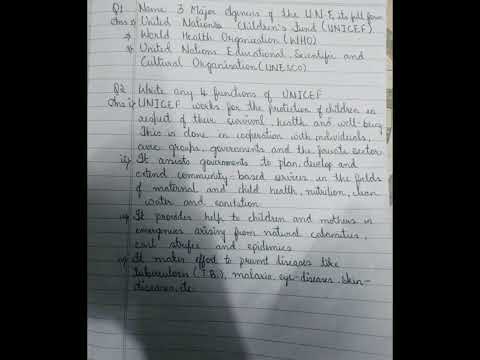 Q1 Name 3 Major Agencies of the U.N. & its full form
Ans i) United Nations Children's fund (UNICEF)
ii) World Health Organisation (WHO)
iii) United Nations Educational Scientific and
Cultural Organisation (UNESCO)
Q2 Write any 4 functions of UNICEF
Ans i) UNICEF works for the protection of children in
respect of their survival, health and well-being
This is done in cooperation with individuals,
civic groups, governments and the private sector
ii) It assists governments to plan, develop and
extend community-based services in the fields
of maternal and child health, nutrition, clean
water and sanitation
iii) It provides help to children and mothers in
emergencies arising from natural calamities,
civil strifes and epidemics
iv) It makes effort to prevent diseases like
tuberculosis (T.B.), malaria, eye-diseases, skin-
diseases, etc